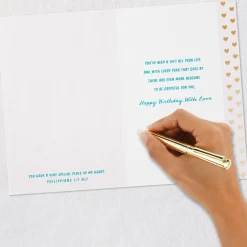 YOU HAVE A VERY SPECIAL PLACE IN MY HEART.
PHILIPPIANS 1:7 NLT
YOU'VE BEEN A GIFT ALL YOUR LIFE
AND WITH EVERY YEAR THAT GOES BY
THERE ARE EVEN MORE REASONS
TO BE GRATEFUL FOR YOU.
Happy Birthday With Love